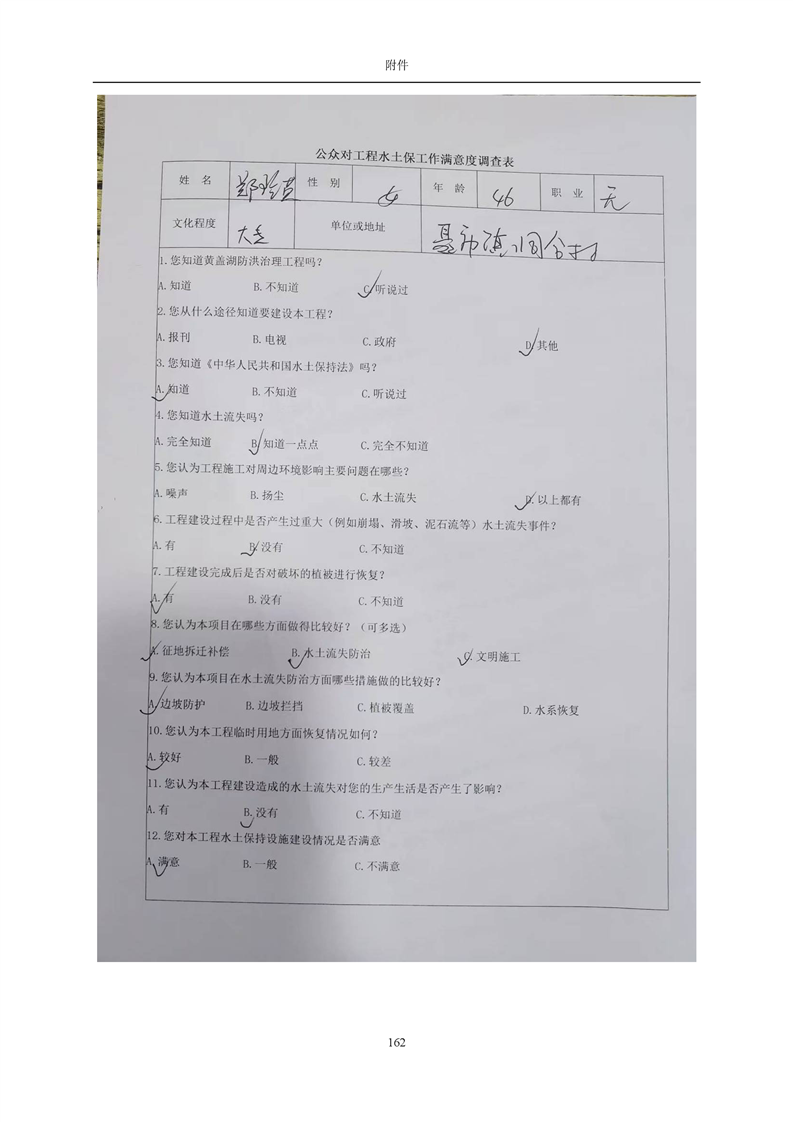 附件
公众对工程水土保工作满意度调查表
姓 名 性 别 女 年 龄 46 职 业 无
文化程度 大专 单位或地址 聂市镇
1.您知道黄盖湖防洪治理工程吗？
A.知道 B.不知道 C.听说过
2.您从什么途径知道要建设本工程？
A.报刊 B.电视 C.政府 D.其他
3.您知道《中华人民共和国水土保持法》吗？
A.知道 B.不知道 C.听说过
4.您知道水土流失吗？
A.完全知道 B.知道一点点 C.完全不知道
5.您认为工程施工对周边环境影响主要问题在哪些？
A.噪声 B.扬尘 C.水土流失 D.以上都有
6.工程建设过程中是否产生过重大（例如崩塌、滑坡、泥石流等）水土流失事件？
A.有 B.没有 C.不知道
7.工程建设完成后是否对破坏的植被进行恢复？
A.有 B.没有 C.不知道
8.您认为本项目在哪些方面做得比较好？（可多选）
A.征地拆迁补偿 B.水土流失防治 C.文明施工
9.您认为本项目在水土流失防治方面哪些措施做的比较好？
A.边坡防护 B.边坡拦挡 C.植被覆盖 D.水系恢复
10.您认为本工程临时用地方面恢复情况如何？
A.较好 B.一般 C.较差
11.您认为本工程建设造成的水土流失对您的生产生活是否产生了影响？
A.有 B.没有 C.不知道
12.您对本工程水土保持设施建设情况是否满意
A.满意 B.一般 C.不满意
162